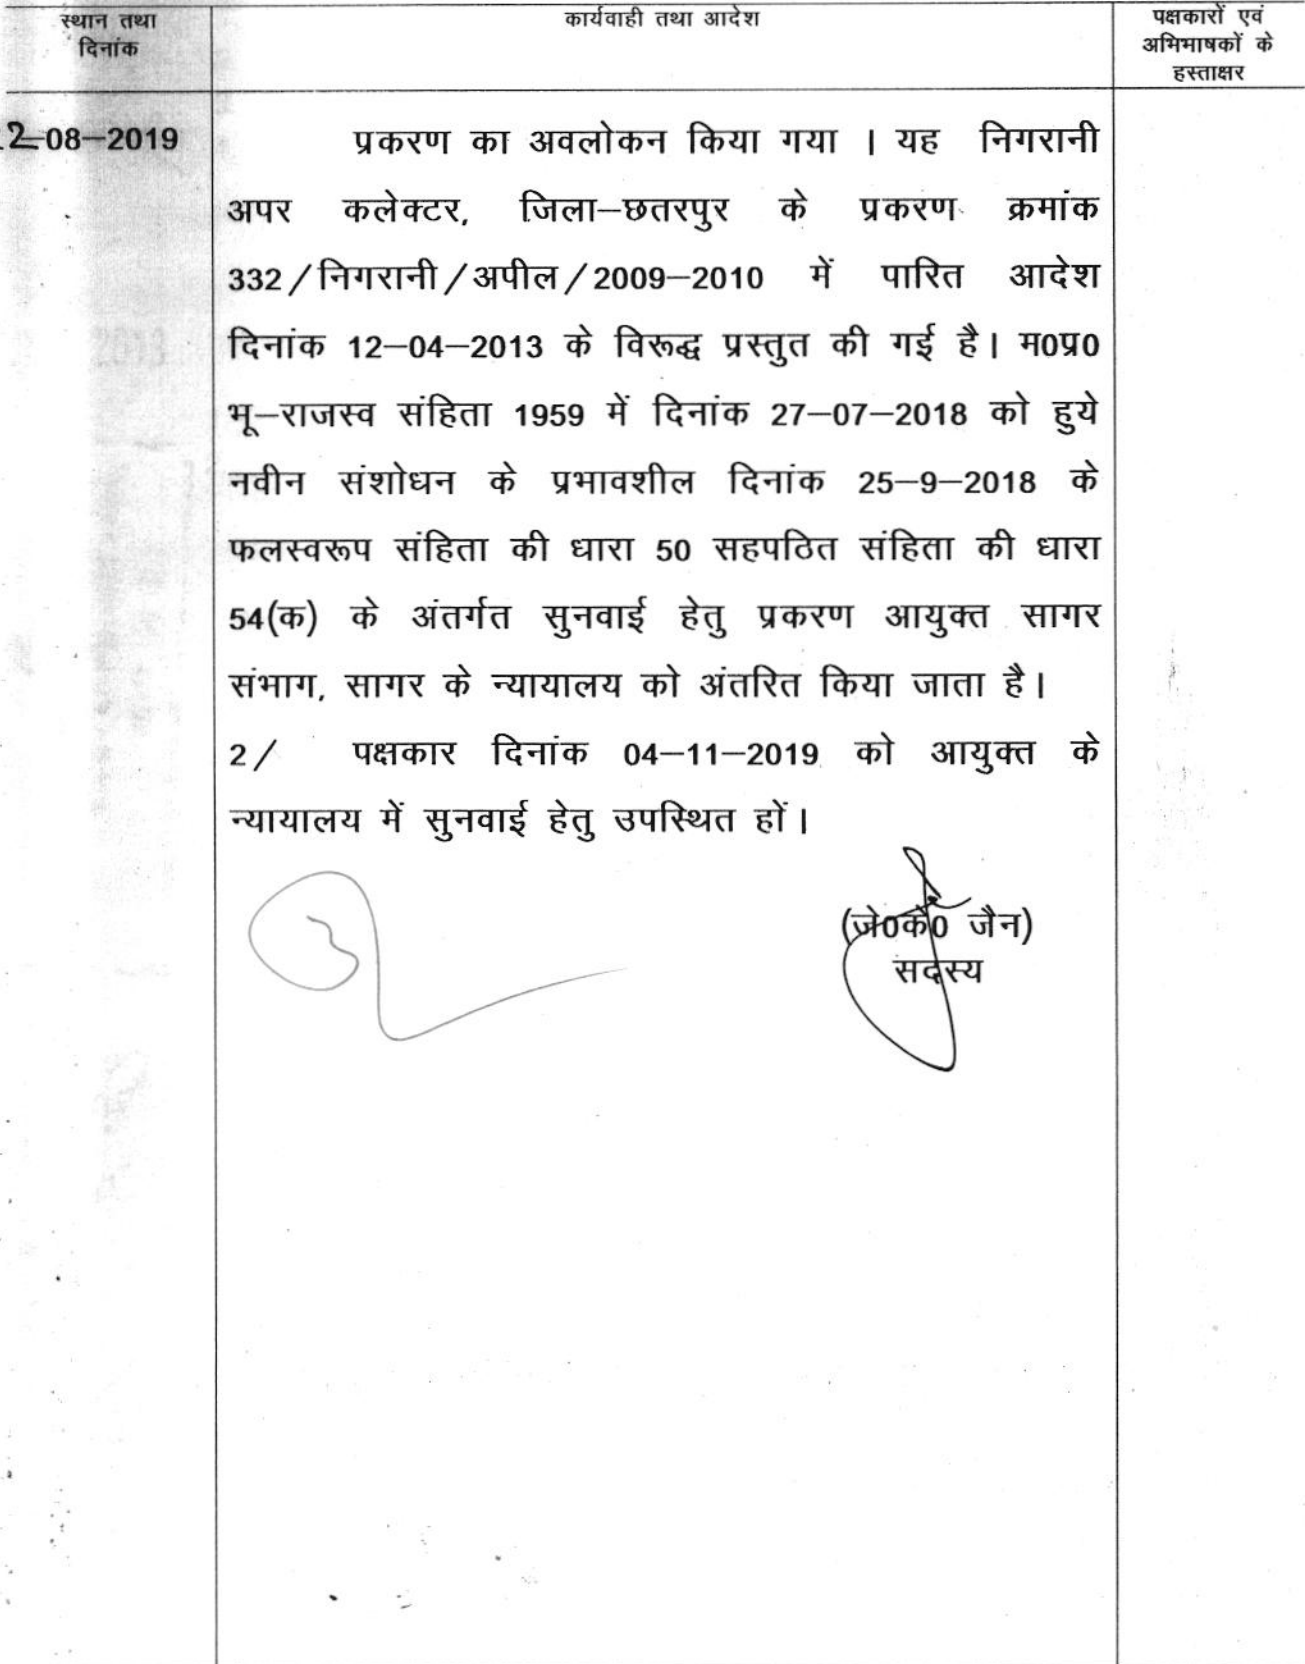 स्थान तथा
दिनांक
कार्यवाही तथा आदेश
पक्षकारों एवं
अभिभाषकों के
हस्ताक्षर
2-08-2019
प्रकरण का अवलोकन किया गया । यह निगरानी
अपर कलेक्टर, जिला–छतरपुर के प्रकरण क्रमांक
332/निगरानी/अपील/2009–2010 में पारित आदेश
दिनांक 12–04–2013 के विरूद्ध प्रस्तुत की गई है। म0प्र0
भू–राजस्व संहिता 1959 में दिनांक 27–07–2018 को हुये
नवीन संशोधन के प्रभावशील दिनांक 25–9–2018 के
फलस्वरूप संहिता की धारा 50 सहपठित संहिता की धारा
54(क) के अंतर्गत सुनवाई हेतु प्रकरण आयुक्त सागर
संभाग, सागर के न्यायालय को अंतरित किया जाता है।
2/ पक्षकार दिनांक 04–11–2019 को आयुक्त के
न्यायालय में सुनवाई हेतु उपस्थित हों।
(जे0के0 जैन)
सदस्य